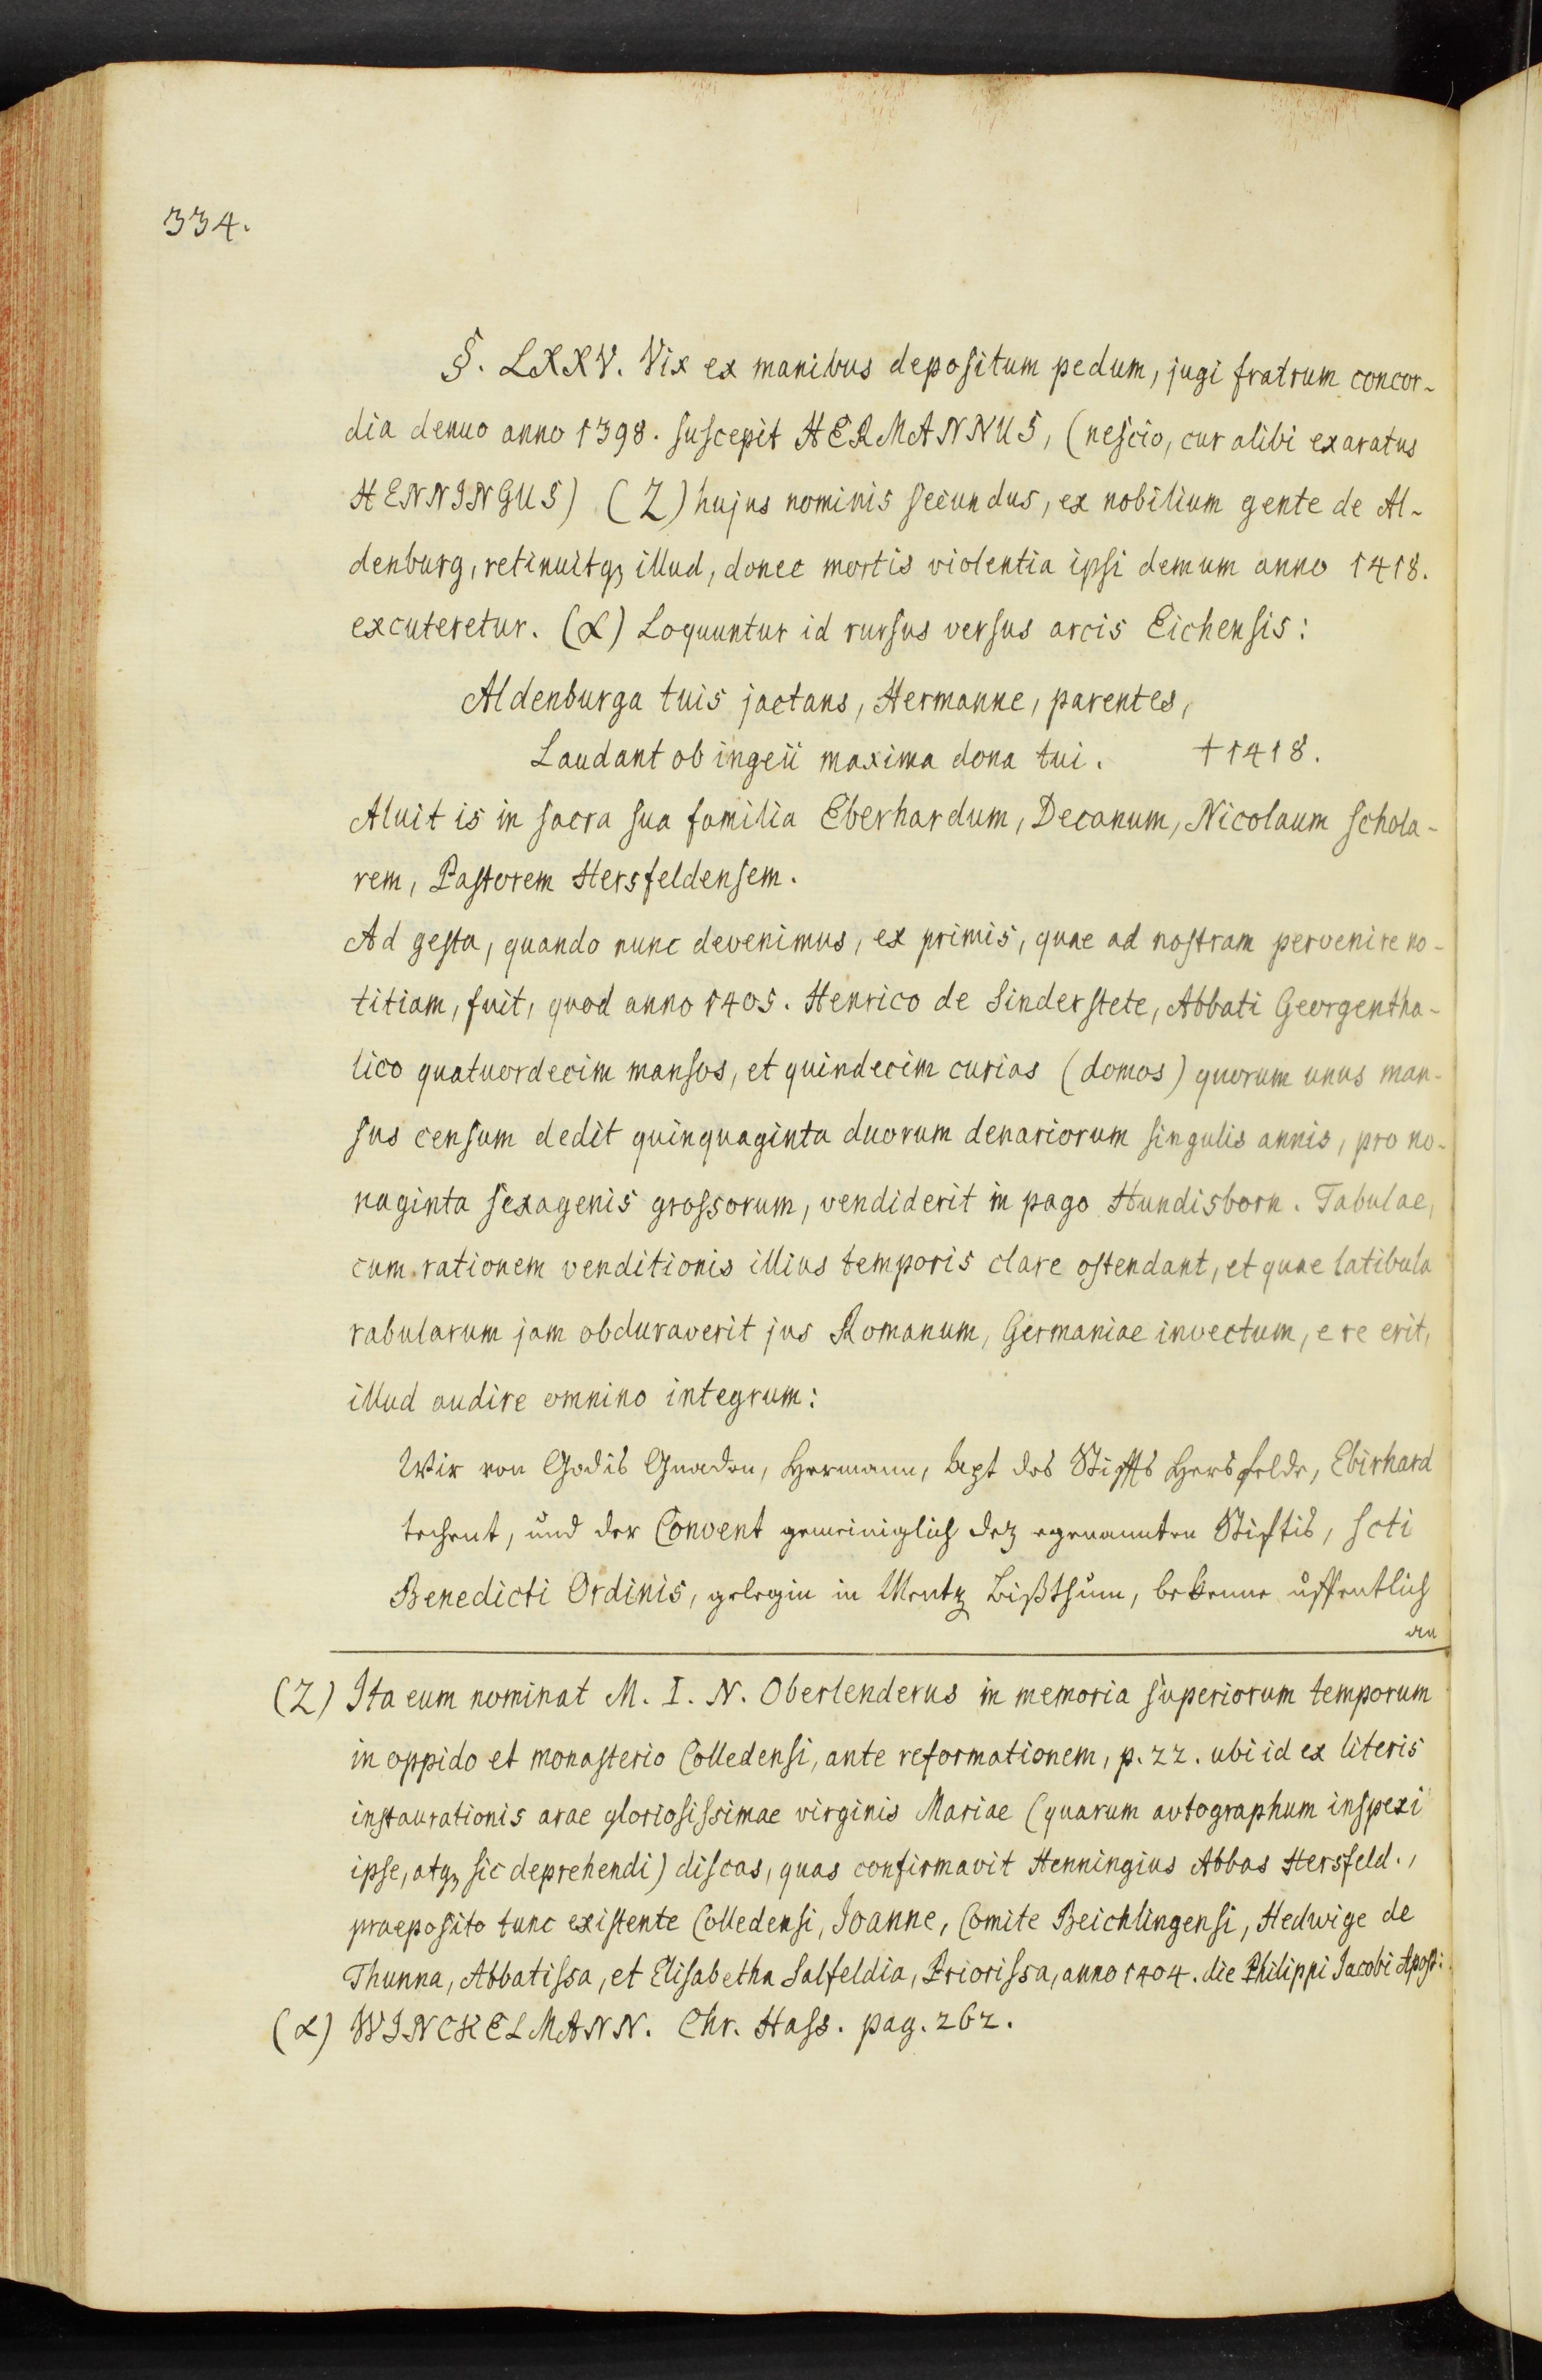 334.
§. LXXV. Vix ex manibus depositum pedum, jugi fratrum concor-
dia denuo anno 1398. suscepit HERMANNUS, (nescio, cur alibi exaratus
HENNINGUS) (Z) hujus nominis secundus, ex nobilium gente de Al-
denburg, retinuitq, illud, donec mortis violentia ipsi demum anno 1418.
excuteretur. (α) Loquuntur id rursus versus arcis Eichensis:
Aldenburga tuis jactans, Hermanne, parentes,
Laudant ob ingeii maxima dona tui. †1418.
Aluit is in sacra sua familia Eberhardum, Decanum, Nicolaum schola-
rem, Pastorem Hersfeldensem.
Ad gesta, quando nunc devenimus, ex primis, quae ad nostram pervenire no-
titiam, fuit, quod anno 1405. Henrico de Sinderstete, Abbati Georgentha-
lico quatuordecim mansos, et quindecim curias (domos) quorum unus man-
sus censum dedit quinquaginta duorum denariorum singulis annis, pro no-
naginta sexagenis grossorum, vendiderit in pago Hundisborn. Tabulae,
cum rationem venditionis illius temporis clare ostendant, et quae latibula
rabularum jam obduraverit jus Romanum, Germaniae invectum, e re erit,
illud audire omnino integrum:
Wir von Godis Gnaden, Hermann, Apt des Stiffts Hersfelde, Ebirhard
techent, und der Convent gemeiniglich dez egenannten Stiftis, scti
Benedicti Ordinis, gelegin in Mentz Bißthum, bekenne uffentlich
an
(Z) Ita eum nominat M. I. N. Oberlenderus in memoria superiorum temporum
in oppido et monasterio Colledensi, ante reformationem, p. 22. ubi id ex literis
instaurationis arae gloriosissimae virginis Mariae (quarum avtographum inspexi
ipse, atq, sic deprehendi) discas, quas confirmavit Henningius Abbas Hersfeld.,
praeposito tunc existente Colledensi, Joanne, Comite Beichlingensi, Hedwige de
Thunna, Abbatissa, et Elisabetha Salfeldia, Priorissa, anno 1404. die Philippi Jacobi Apost:
(α) WINCKELMANN. Chr. Hass. pag. 262.